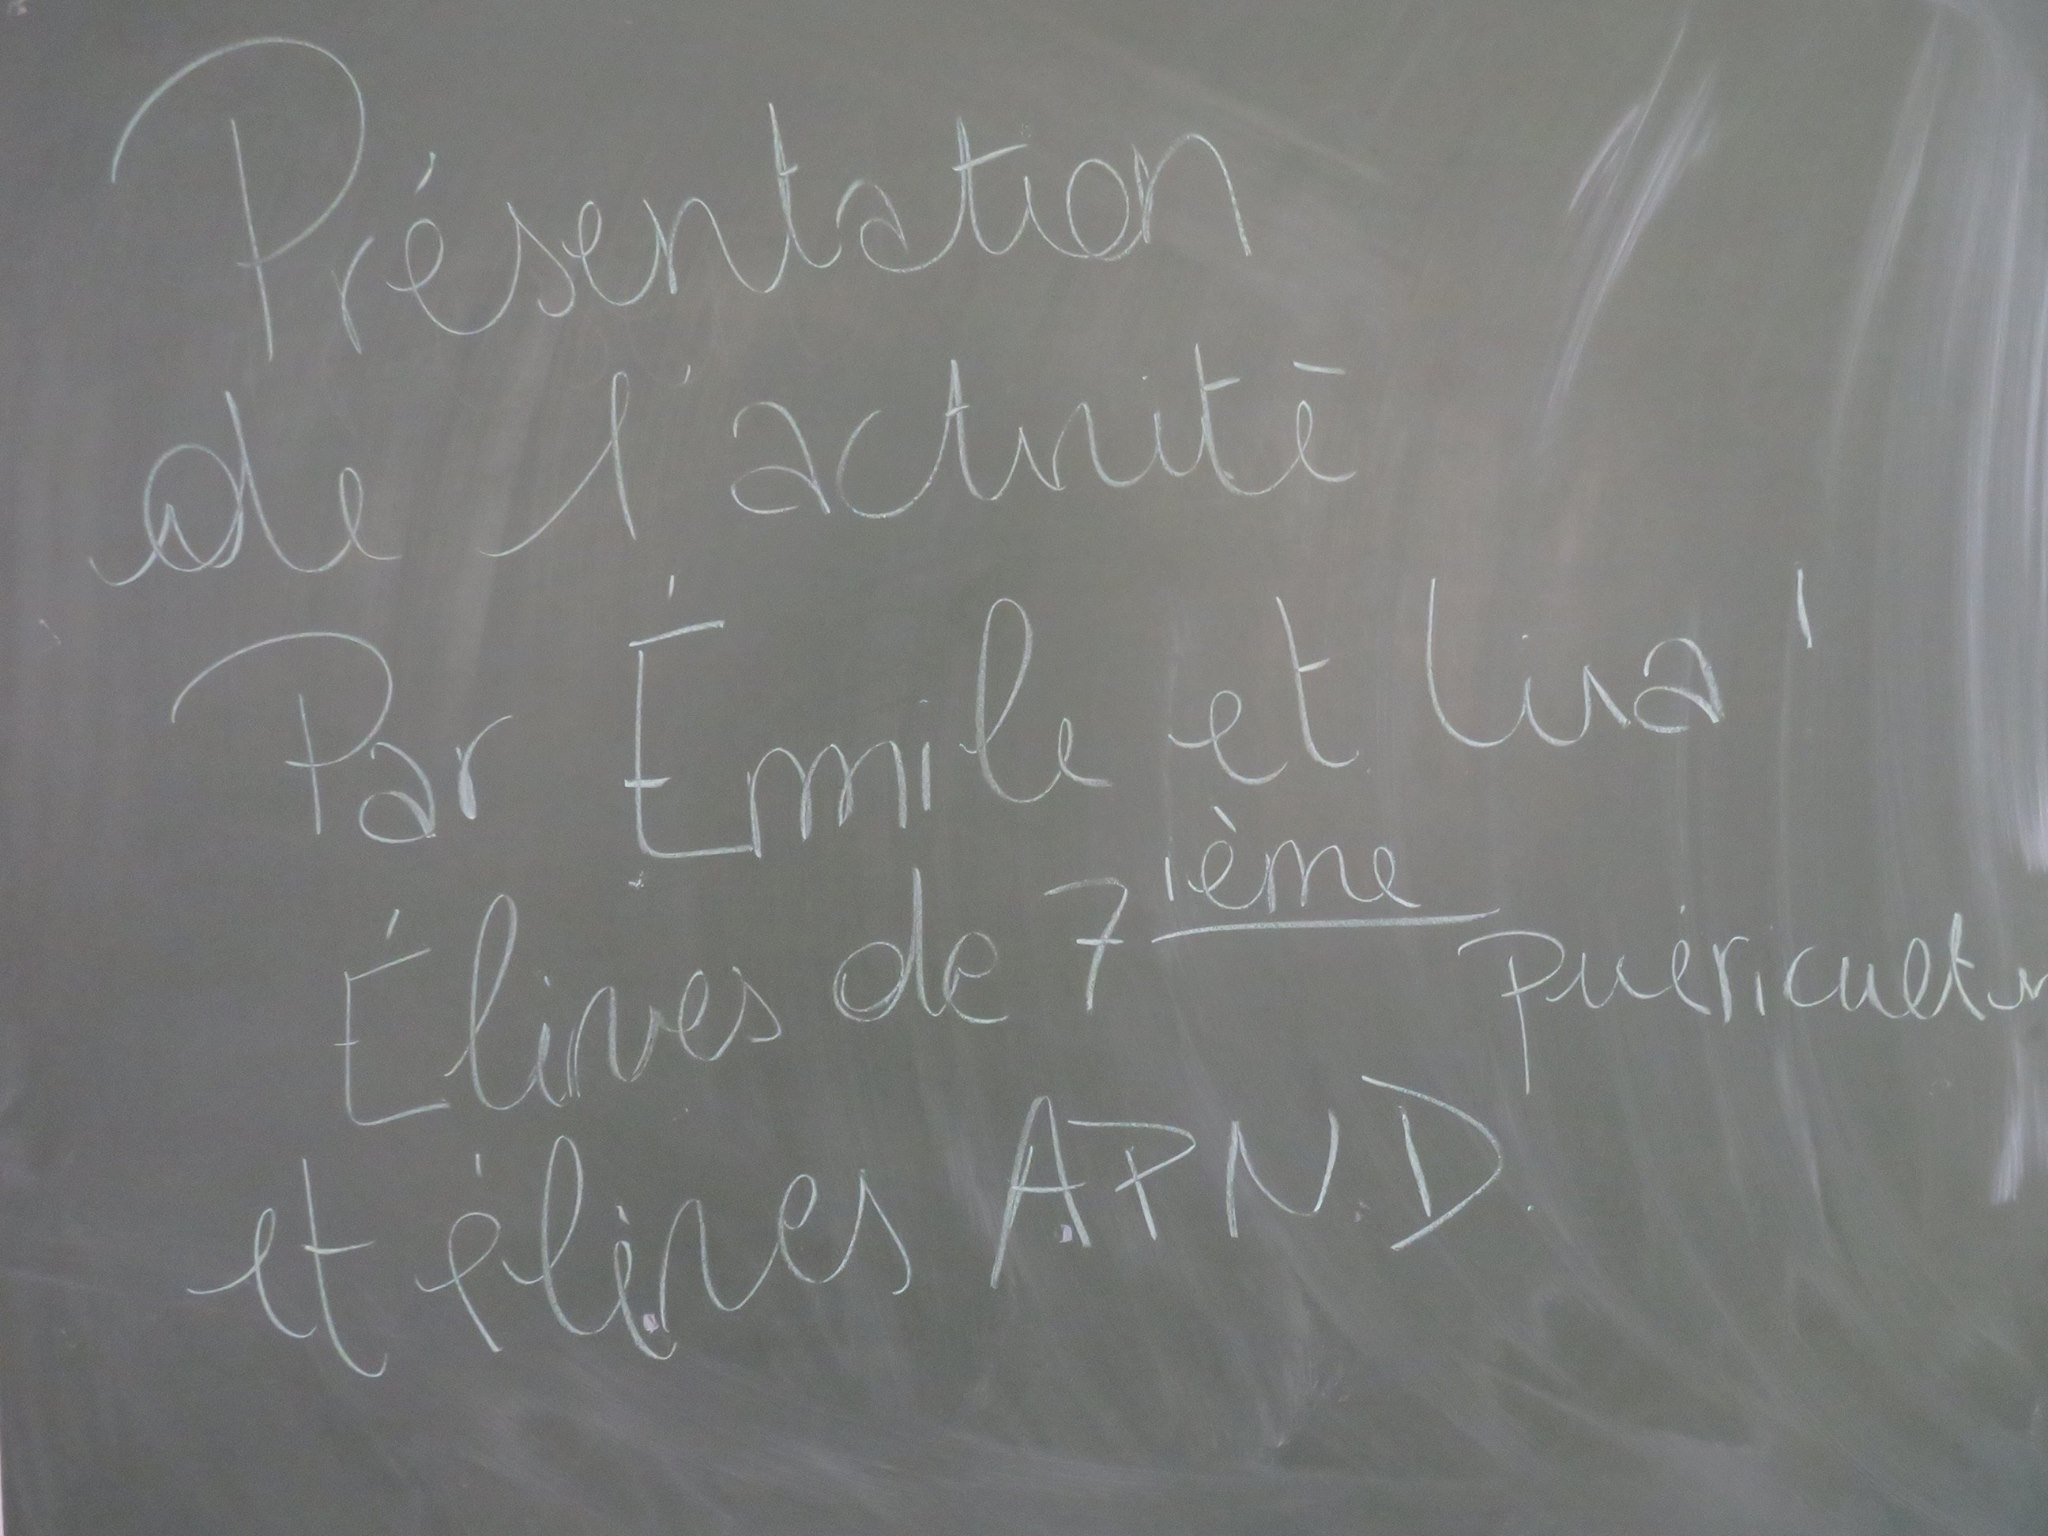 Présentation
de l'activité
Par Émile et lisa !
Élèves de 7ième puéricultu
et élèves A.P.N.D.